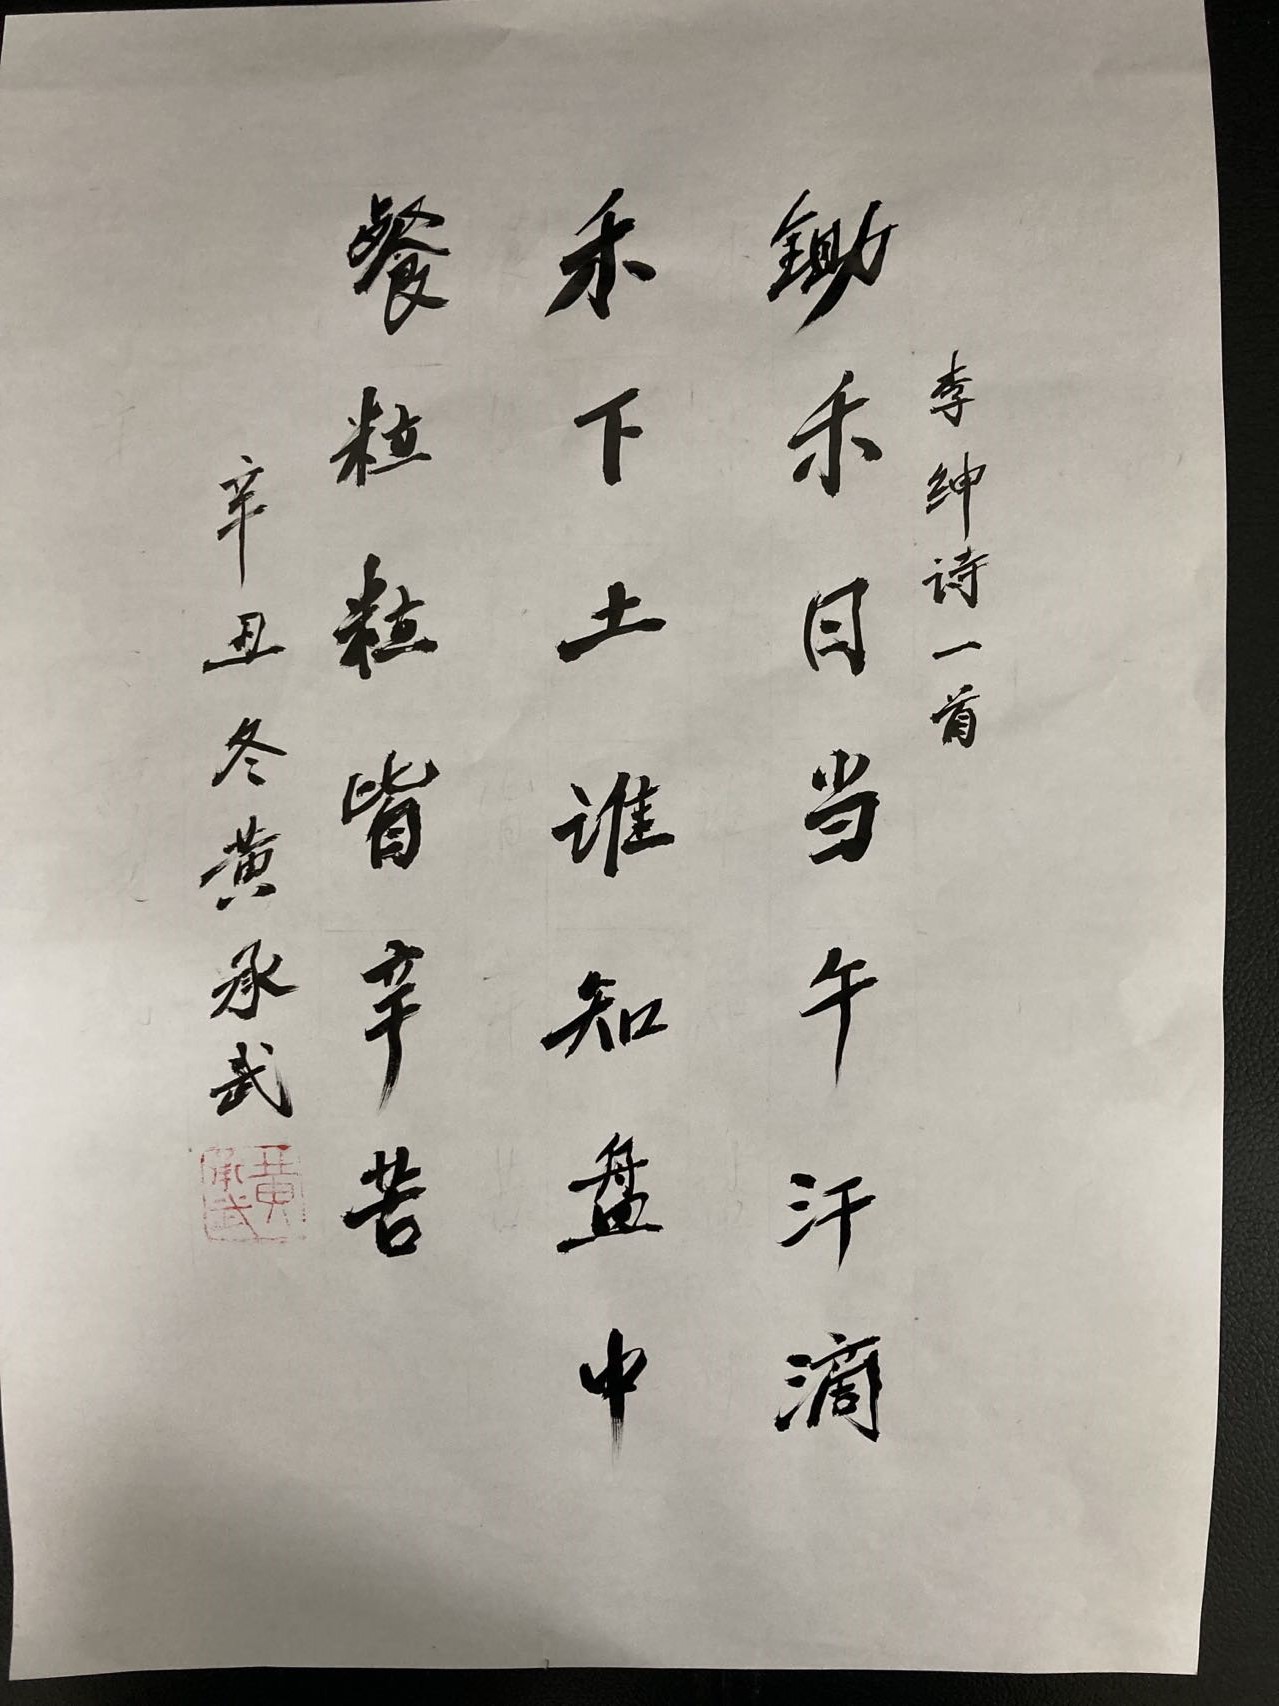 李绅诗一首
锄禾日当午汗滴
禾下土谁知盘中
餐粒粒皆辛苦
辛丑冬黄承武
黄承武